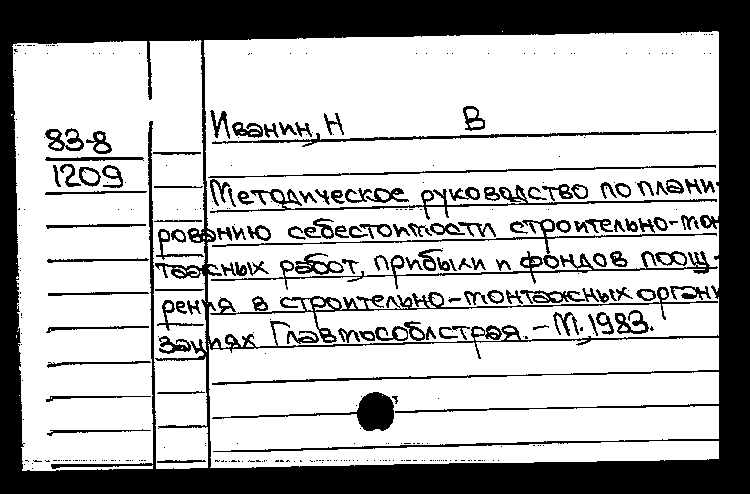 83-8
1209
Иванин, Н В
Методическое руководство по плани-
рованию себестоимости строительно-мон
тажных работ, прибыли и фондов поощ-
рения в строительно-монтажных органи
зациях Главмособлстроя. – М., 1983.